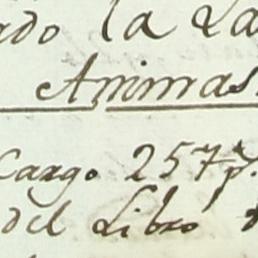 ado la La
Animas
Cargo 257 p.
del Libro